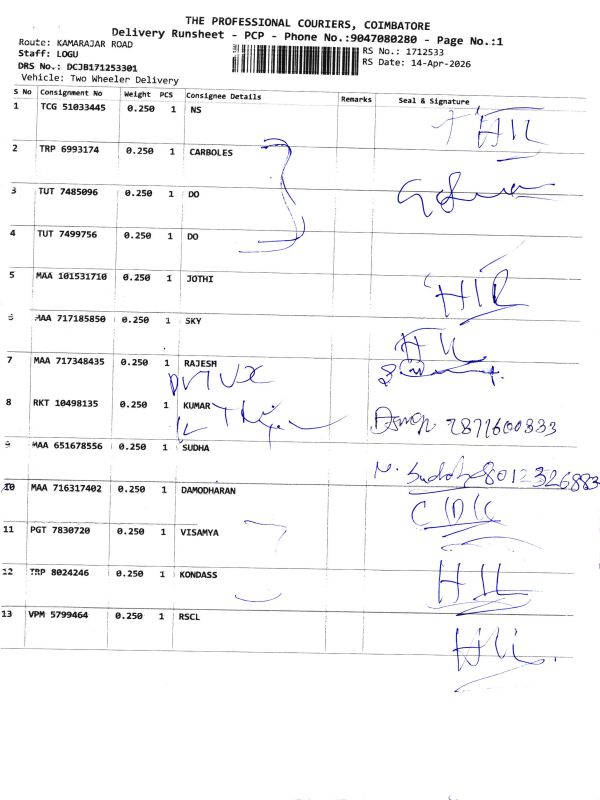 THE PROFESSIONAL COURIERS, COIMBATORE
Delivery Runsheet - PCP - Phone No.:9047080280 - Page No.:1
Route: KAMARAJAR ROAD
Staff: LOGU
DRS No.: DCJB171253301
Vehicle: Two Wheeler Delivery
RS No.: 1712533
RS Date: 14-Apr-2026
S No Consignment No Weight PCS Consignee Details Remarks Seal & Signature
1 TCG 51033445 0.250 1 NS
2 TRP 6993174 0.250 1 CARBOLES
3 TUT 7485096 0.250 1 DO
4 TUT 7499756 0.250 1 DO
5 MAA 101531710 0.250 1 JOTHI
6 MAA 717185850 0.250 1 SKY
7 MAA 717348435 0.250 1 RAJESH
8 RKT 10498135 0.250 1 KUMAR
9 MAA 651678556 0.250 1 SUDHA
N. Sudha 8012326883
10 MAA 716317402 0.250 1 DAMODHARAN
11 PGT 7830720 0.250 1 VISAMYA
12 TRP 8024246 0.250 1 KONDASS
13 VPM 5799464 0.250 1 RSCL